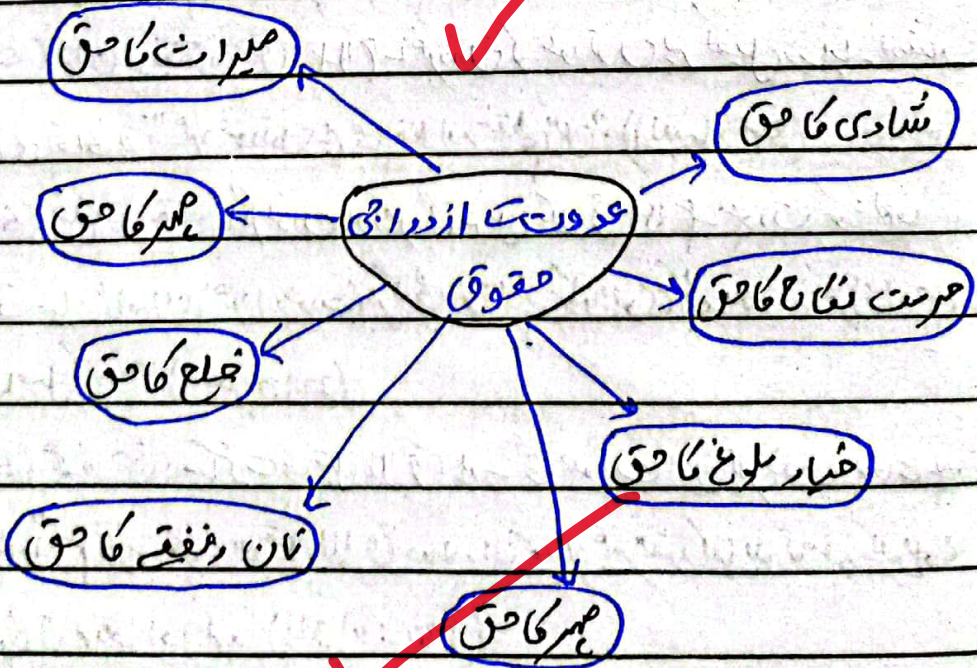 میراث کا حق
شادی کا حق
عورت کا ازدواجی
حقوق
مہر کا حق
حرمت نکاح کا حق
خلع کا حق
خیار بلوغ کا حق
نان ونفقے کا حق
مہر کا حق